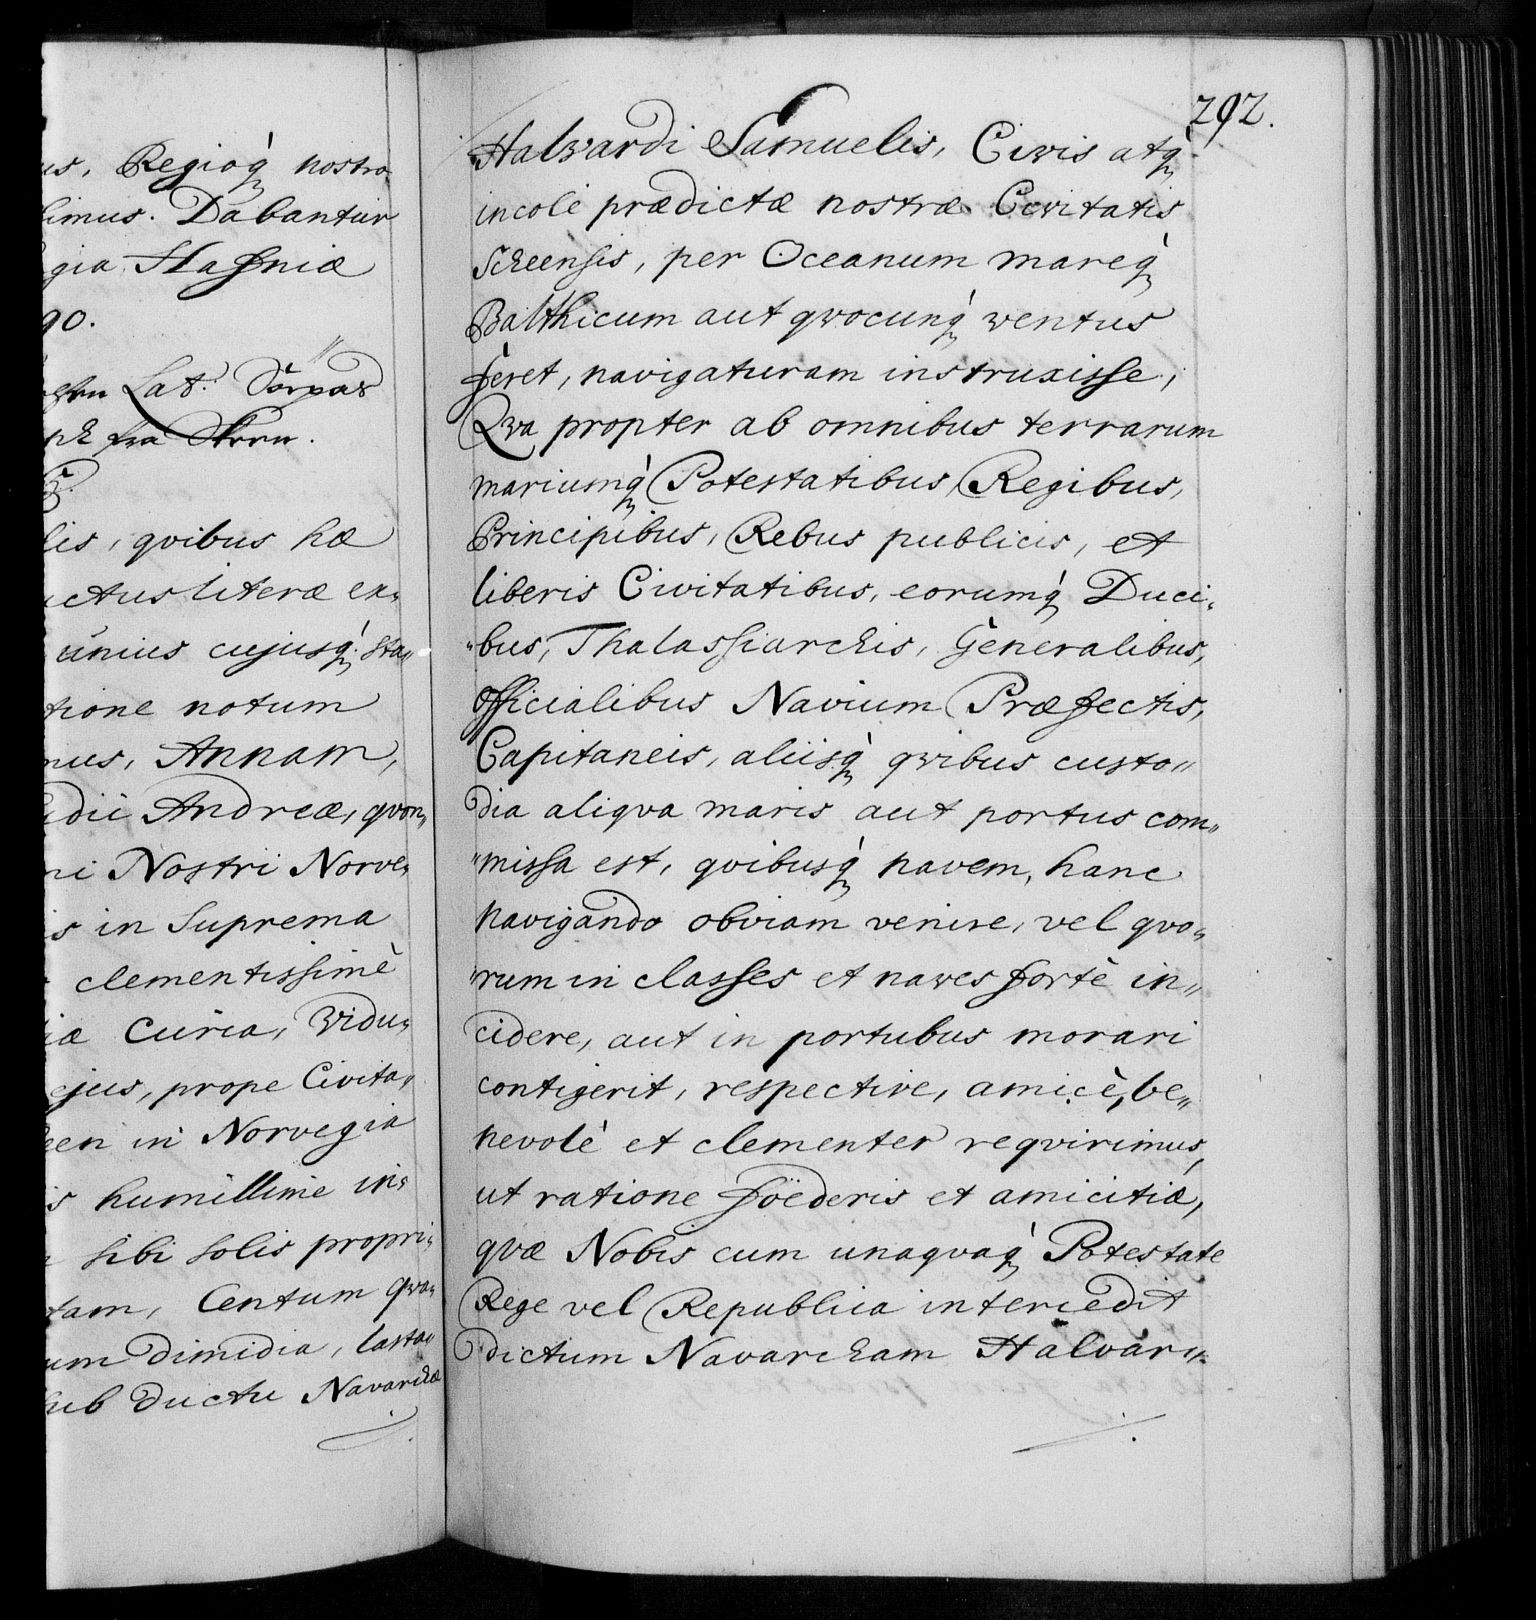 us, Regioq́ nostro
limus. Dabantur
gia Hafniæ
90.
Lat. Söepas
fra
lis, qvibus hæ
ctus literæ ex„
unius cujusq́ sta„
tione notum
mus, Annam,
dii Andreæ, qvon„
ni Nostri Norve„
s in Suprema
clementissimè
iæ Curia, Vidu„
ejus, prope Civita„
een in Norvegia
s humillime in„
sibi solis propri„
tam, Centum qva„
um dimidia, lasta„
sub ductu Navarchæ
292.
Halvardi Samuelis, Civis atq́
incolè prædictæ nostræ Civitatis
Scheensis, per Oceanum mareq́
Balthicum aut qvocunq́ ventus
feret, navigaturam instruxisse,
Qva propter ab omnibus terrarum
mariumq́ Potestatibus, Regibus,
Principibus, Rebus publicis, et
liberis Civitatibus, eorumq́ Duci„
„bus, Thalassiarchis, Generalibus,
officialibus Navium Præfectis,
Capitaneis, aliisq́ qvibus custo„
dia aliqva maris aut portus com„
„missa est, qvibusq́ navem, hanc
navigando obviam venire, vel qvo„
„rum in classes et naves fortè in„
cidere, aut in portubus morari
contigerit, respective, amicè, be„
nevolè et clementer reqvirimus,
ut ratione föederis et amicitiæ,
qvæ Nobis cum unaqvaq́ Potestate
Rege vel Republica intercedit
dictum Navarcham Halvar„